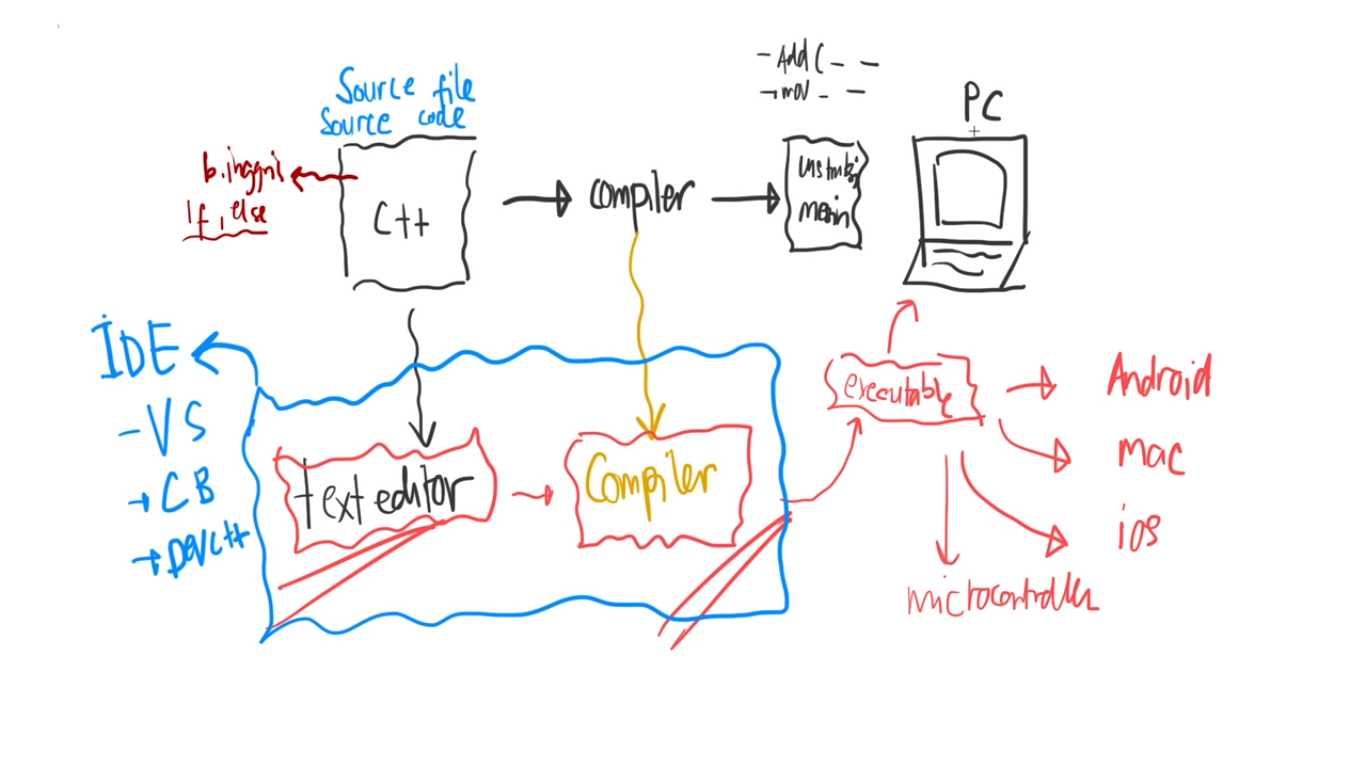 - Add ( - -
→ mov - -
PC
Source file
Source code
b. inggris
If, else
C++
compiler
instruksi
mesin
IDE
- VS
→ CB
→ DevC++
text editor
Compiler
executable
Android
mac
ios
microcontroller